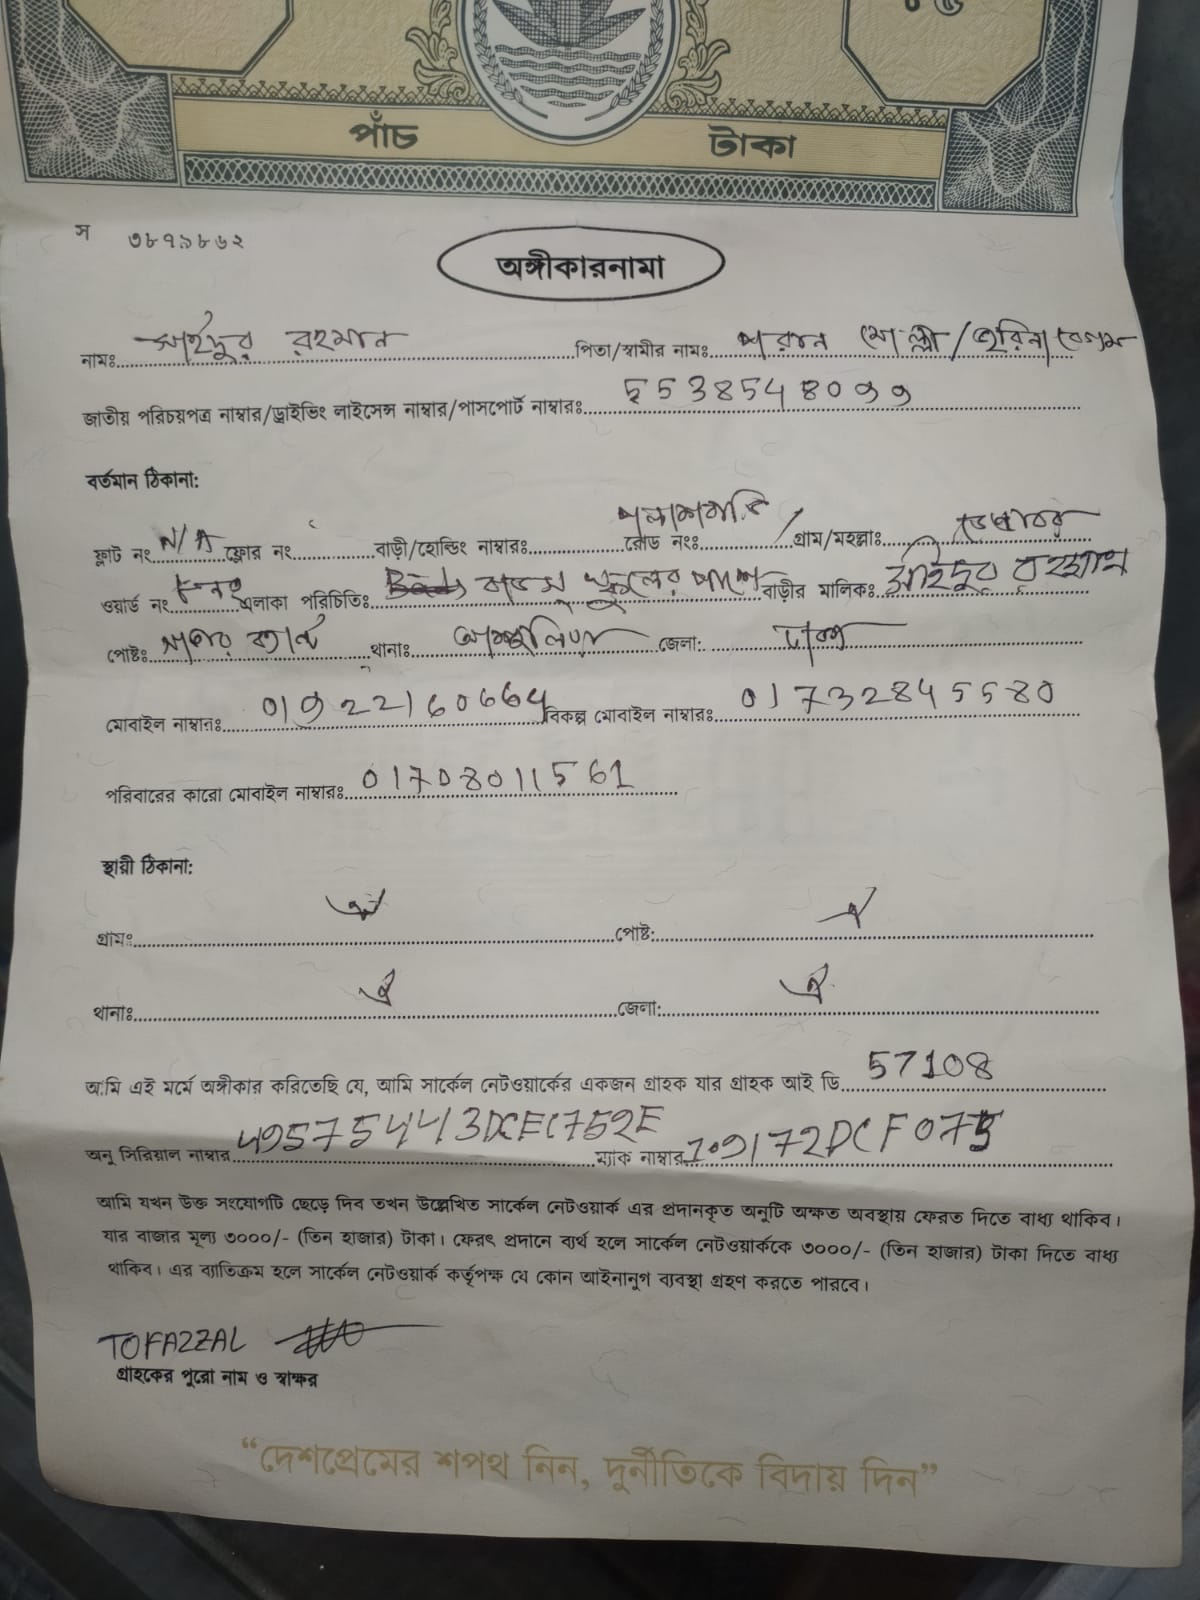 পাঁচ টাকা
স ৩৮৭৯৮৬২
অঙ্গীকারনামা
নামঃ সাইদুর রহমান পিতা/স্বামীর নামঃ পরান মোল্লা/জরিনা বেগম
জাতীয় পরিচয়পত্র নাম্বার/ড্রাইভিং লাইসেন্স নাম্বার/পাসপোর্ট নাম্বারঃ 5538548099
বর্তমান ঠিকানা:
ফ্লাট নং N/A ফ্লোর নং বাড়ী/হোল্ডিং নাম্বারঃ রোড নংঃ পলাশবাড়ি / গ্রাম/মহল্লাঃ
ওয়ার্ড নং এলাকা পরিচিতিঃ স্কুলের পাশে বাড়ীর মালিকঃ সাইদুর রহমান
পোষ্টঃ থানাঃ আশুলিয়া জেলা: ঢাকা
মোবাইল নাম্বারঃ 01922160664 বিকল্প মোবাইল নাম্বারঃ 01732845580
পরিবারের কারো মোবাইল নাম্বারঃ 01708011561
স্থায়ী ঠিকানা:
গ্রামঃ ঐ পোষ্ট: ঐ
থানাঃ ঐ জেলা: ঐ
আমি এই মর্মে অঙ্গীকার করিতেছি যে, আমি সার্কেল নেটওয়ার্কের একজন গ্রাহক যার গ্রাহক আই ডি 57108
অনু সিরিয়াল নাম্বার 495754443DCEC752E ম্যাক নাম্বার
আমি যখন উক্ত সংযোগটি ছেড়ে দিব তখন উল্লেখিত সার্কেল নেটওয়ার্ক এর প্রদানকৃত অনুটি অক্ষত অবস্থায় ফেরত দিতে বাধ্য থাকিব।
যার বাজার মূল্য ৩০০০/- (তিন হাজার) টাকা। ফেরৎ প্রদানে ব্যর্থ হলে সার্কেল নেটওয়ার্ককে ৩০০০/- (তিন হাজার) টাকা দিতে বাধ্য
থাকিব। এর ব্যাতিক্রম হলে সার্কেল নেটওয়ার্ক কর্তৃপক্ষ যে কোন আইনানুগ ব্যবস্থা গ্রহণ করতে পারবে।
TOFAZZAL
গ্রাহকের পুরো নাম ও স্বাক্ষর
“দেশপ্রেমের শপথ নিন, দুর্নীতিকে বিদায় দিন”